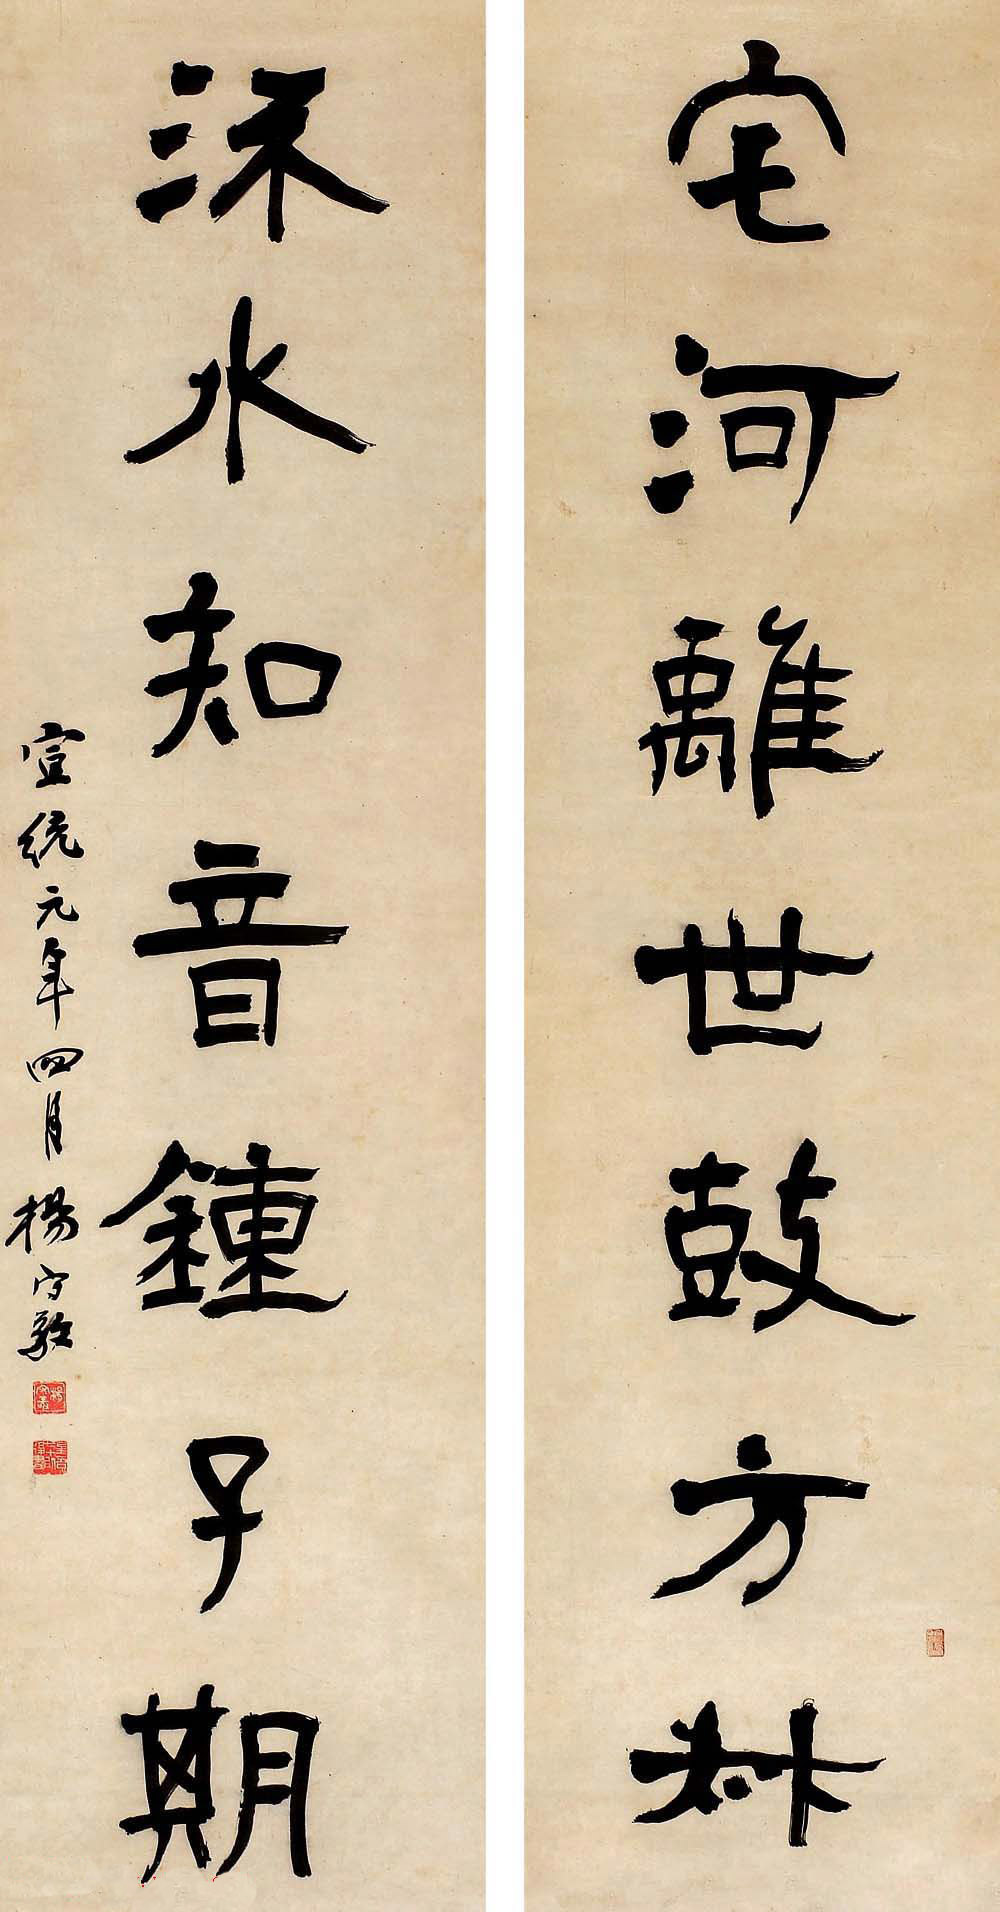 宅河離世鼓方叔
流水知音鍾子期
宣統元年四月楊守敬